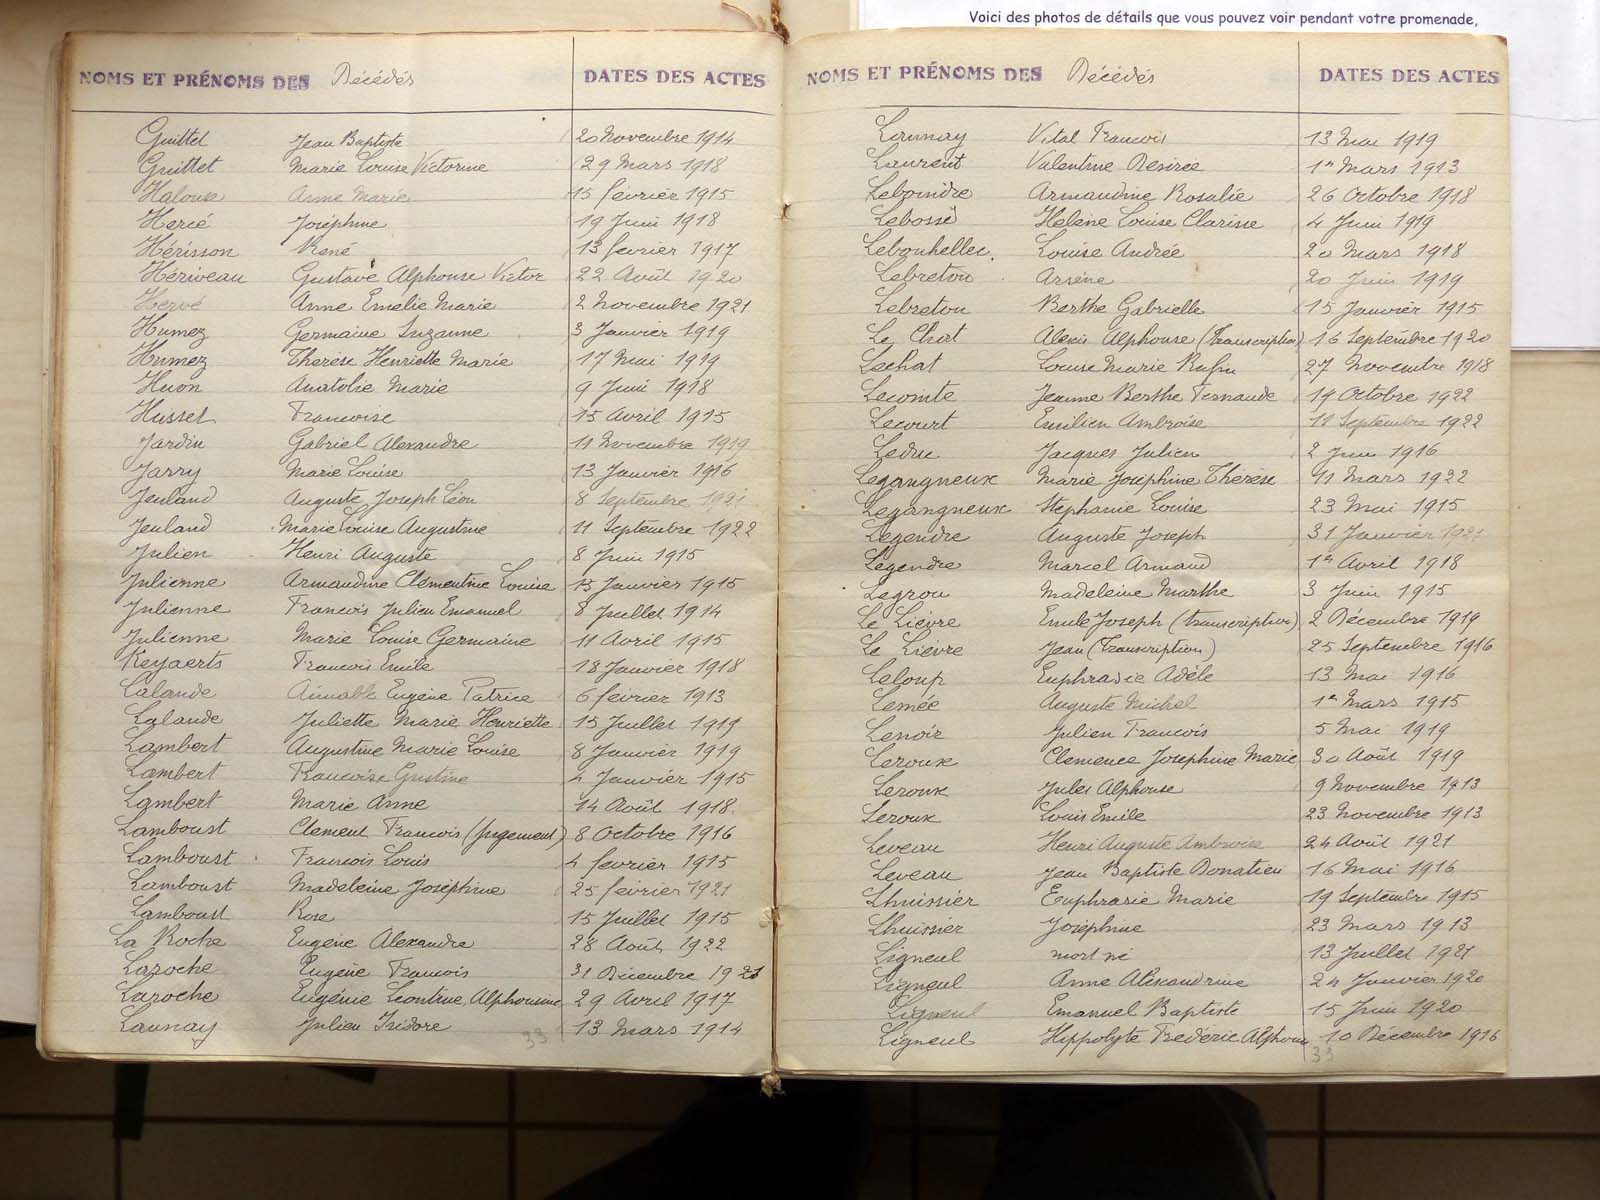 Voici des photos de détails que vous pouvez voir pendant votre promenade,
NOMS ET PRÉNOMS DES Décédés DATES DES ACTES
Guittet Jean Baptiste 20 Novembre 1914
Guittet Marie Louise Victorine 29 Mars 1918
Halouse Anne Marie 15 février 1915
Hercé Joséphine 19 Juin 1918
Hérisson René 13 fevrier 1917
Hériveau Gustave Alphonse Victor 22 Août 1920
Hervé Anne Emelie Marie 2 Novembre 1921
Humez Germaine Suzanne 3 Janvier 1919
Humez Therese Henriette Marie 17 Mai 1919
Huon Anatolie Marie 9 Juin 1918
Husset Francoise 15 Avril 1915
Jardin Gabriel Alexandre 11 Novembre 1919
Jarry Marie Louise 13 Janvier 1916
Jeuland Auguste Joseph Léon 8 Septembre 1921
Jeuland Marie Louise Augustine 11 Septembre 1922
Julien Henri Auguste 8 Juin 1915
Julienne Armandine Clementine Louise 15 Janvier 1915
Julienne Francois Julien Emanuel 8 Juillet 1914
Julienne Marie Louise Germaine 11 Avril 1915
Keyaerts Francois Emile 18 Janvier 1918
Lalande Aimable Eugène Patrice 6 fevrier 1913
Lalande Juliette Marie Henriette 15 Juillet 1919
Lambert Augustine Marie Louise 8 Janvier 1919
Lambert Francoise Gustine 4 Janvier 1915
Lambert Marie Anne 14 Août 1918
Lamboust Clement Francois (Jugement) 8 Octobre 1916
Lamboust Francois Louis 4 fevrier 1915
Lamboust Madeleine Joséphine 25 fevrier 1921
Lamboust Rose 15 Juillet 1915
La Roche Eugène Alexandre 28 Août 1922
Laroche Eugène Francois 31 Décembre 1921
Laroche Eugénie Leontine Alphonsine 29 Avril 1917
Launay Julien Isidore 13 Mars 1914
33
NOMS ET PRÉNOMS DES Décédés DATES DES ACTES
Launay Vital Francois 13 Mai 1919
Laurent Valentine Desiree 1er Mars 1913
Leboindre Armandine Rosalie 26 Octobre 1918
Lebossé Helène Louise Clarisse 4 Juin 1919
Lebouhellec Louise Andrée 20 Mars 1918
Lebreton Arsène 20 Juin 1919
Lebreton Berthe Gabrielle 15 Janvier 1915
Le Chat Alexis Alphonse (Transcription) 16 Septembre 1920
Lechat Louise Marie 27 Novembre 1918
Lecomte Jeanne Berthe Fernande 19 Octobre 1922
Lecourt Emilien Ambroise 11 Septembre 1922
Leduc Jacques Julien 2 Juin 1916
Legangneux Marie Joséphine Thérèse 11 Mars 1922
Legangneux Stephanie Louise 23 Mai 1915
Legendre Auguste Joseph 31 Janvier 1921
Legendre Marcel Armand 1er Avril 1918
Legrou Madeleine Marthe 3 Juin 1915
Le Lièvre Emile Joseph (Transcription) 2 Décembre 1919
Le Lièvre Jean (Transcription) 25 Septembre 1916
Leloup Euphrasie Adèle 13 Mai 1916
Lemée Auguste Michel 1er Mars 1915
Lenoir Julien Francois 5 Mai 1919
Leroux Clemence Josephine Marie 30 Août 1919
Leroux Jules Alphonse 9 Novembre 1913
Leroux Louis Emile 23 Novembre 1913
Leveau Henri Auguste Ambroise 24 Août 1921
Leveau Jean Baptiste Donatien 16 Mai 1916
Lhuissier Euphrasie Marie 19 Septembre 1915
Lhuissier Joséphine 23 Mars 1913
Ligneul mort né 13 Juillet 1921
Ligneul Anne Alexandrine 24 Janvier 1920
Ligneul Emanuel Baptiste 15 Juin 1920
Ligneul Hippolyte Frederic Alphonse 10 Décembre 1916
33